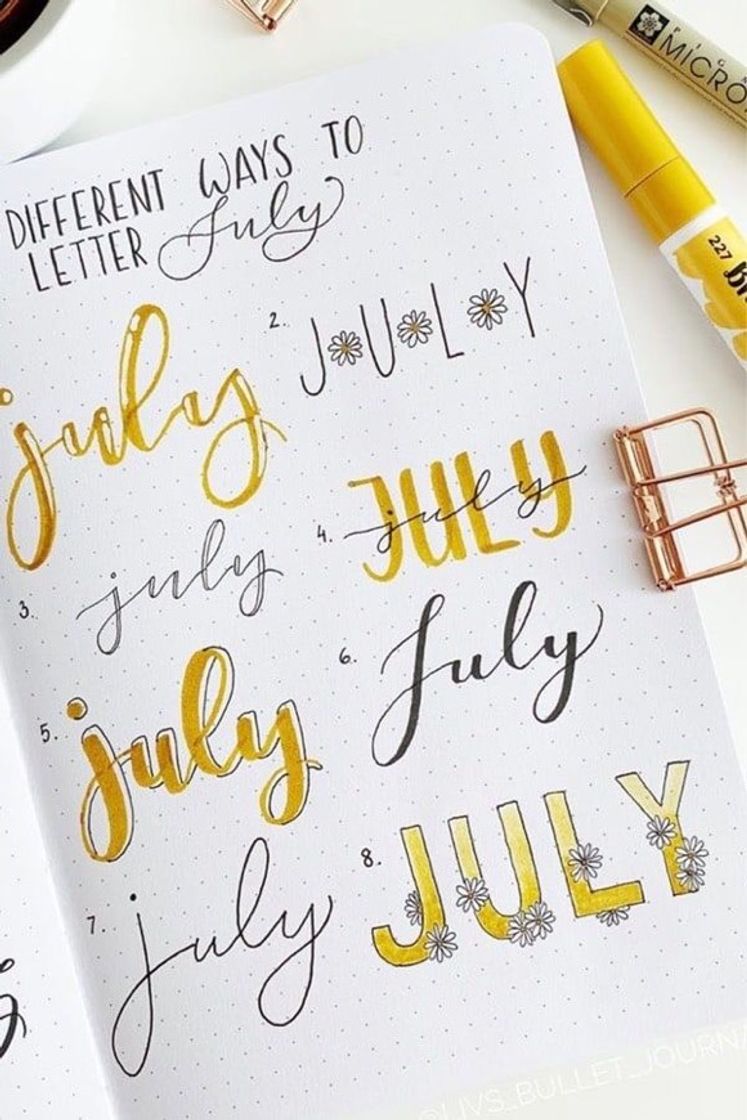 DIFFERENT WAYS TO
LETTER July
july
2. JULY
3. july
4. JULY
july
5. july
6. July
7. july
8. JULY
MICRO
227
@LIVS_BULLET_JOURN